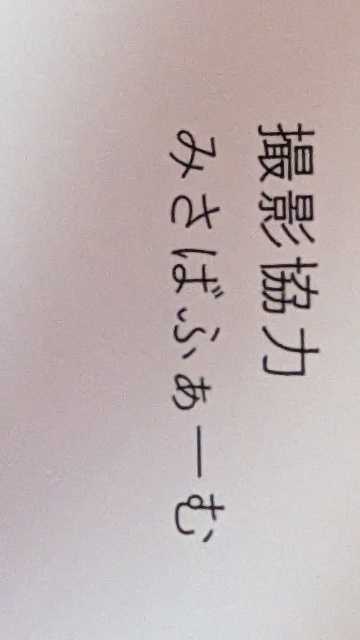 撮影協力
みさばふぁーむ